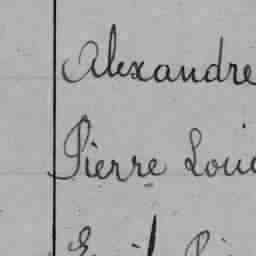 Alexandre
Pierre Loui